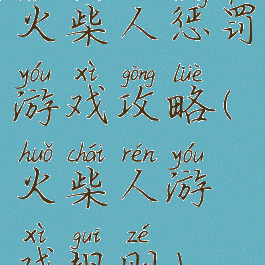 火柴人惩罚
yóu xì gōng lüè
游戏攻略(
huǒ chái rén yóu
火柴人游
xì guī zé
戏规则)